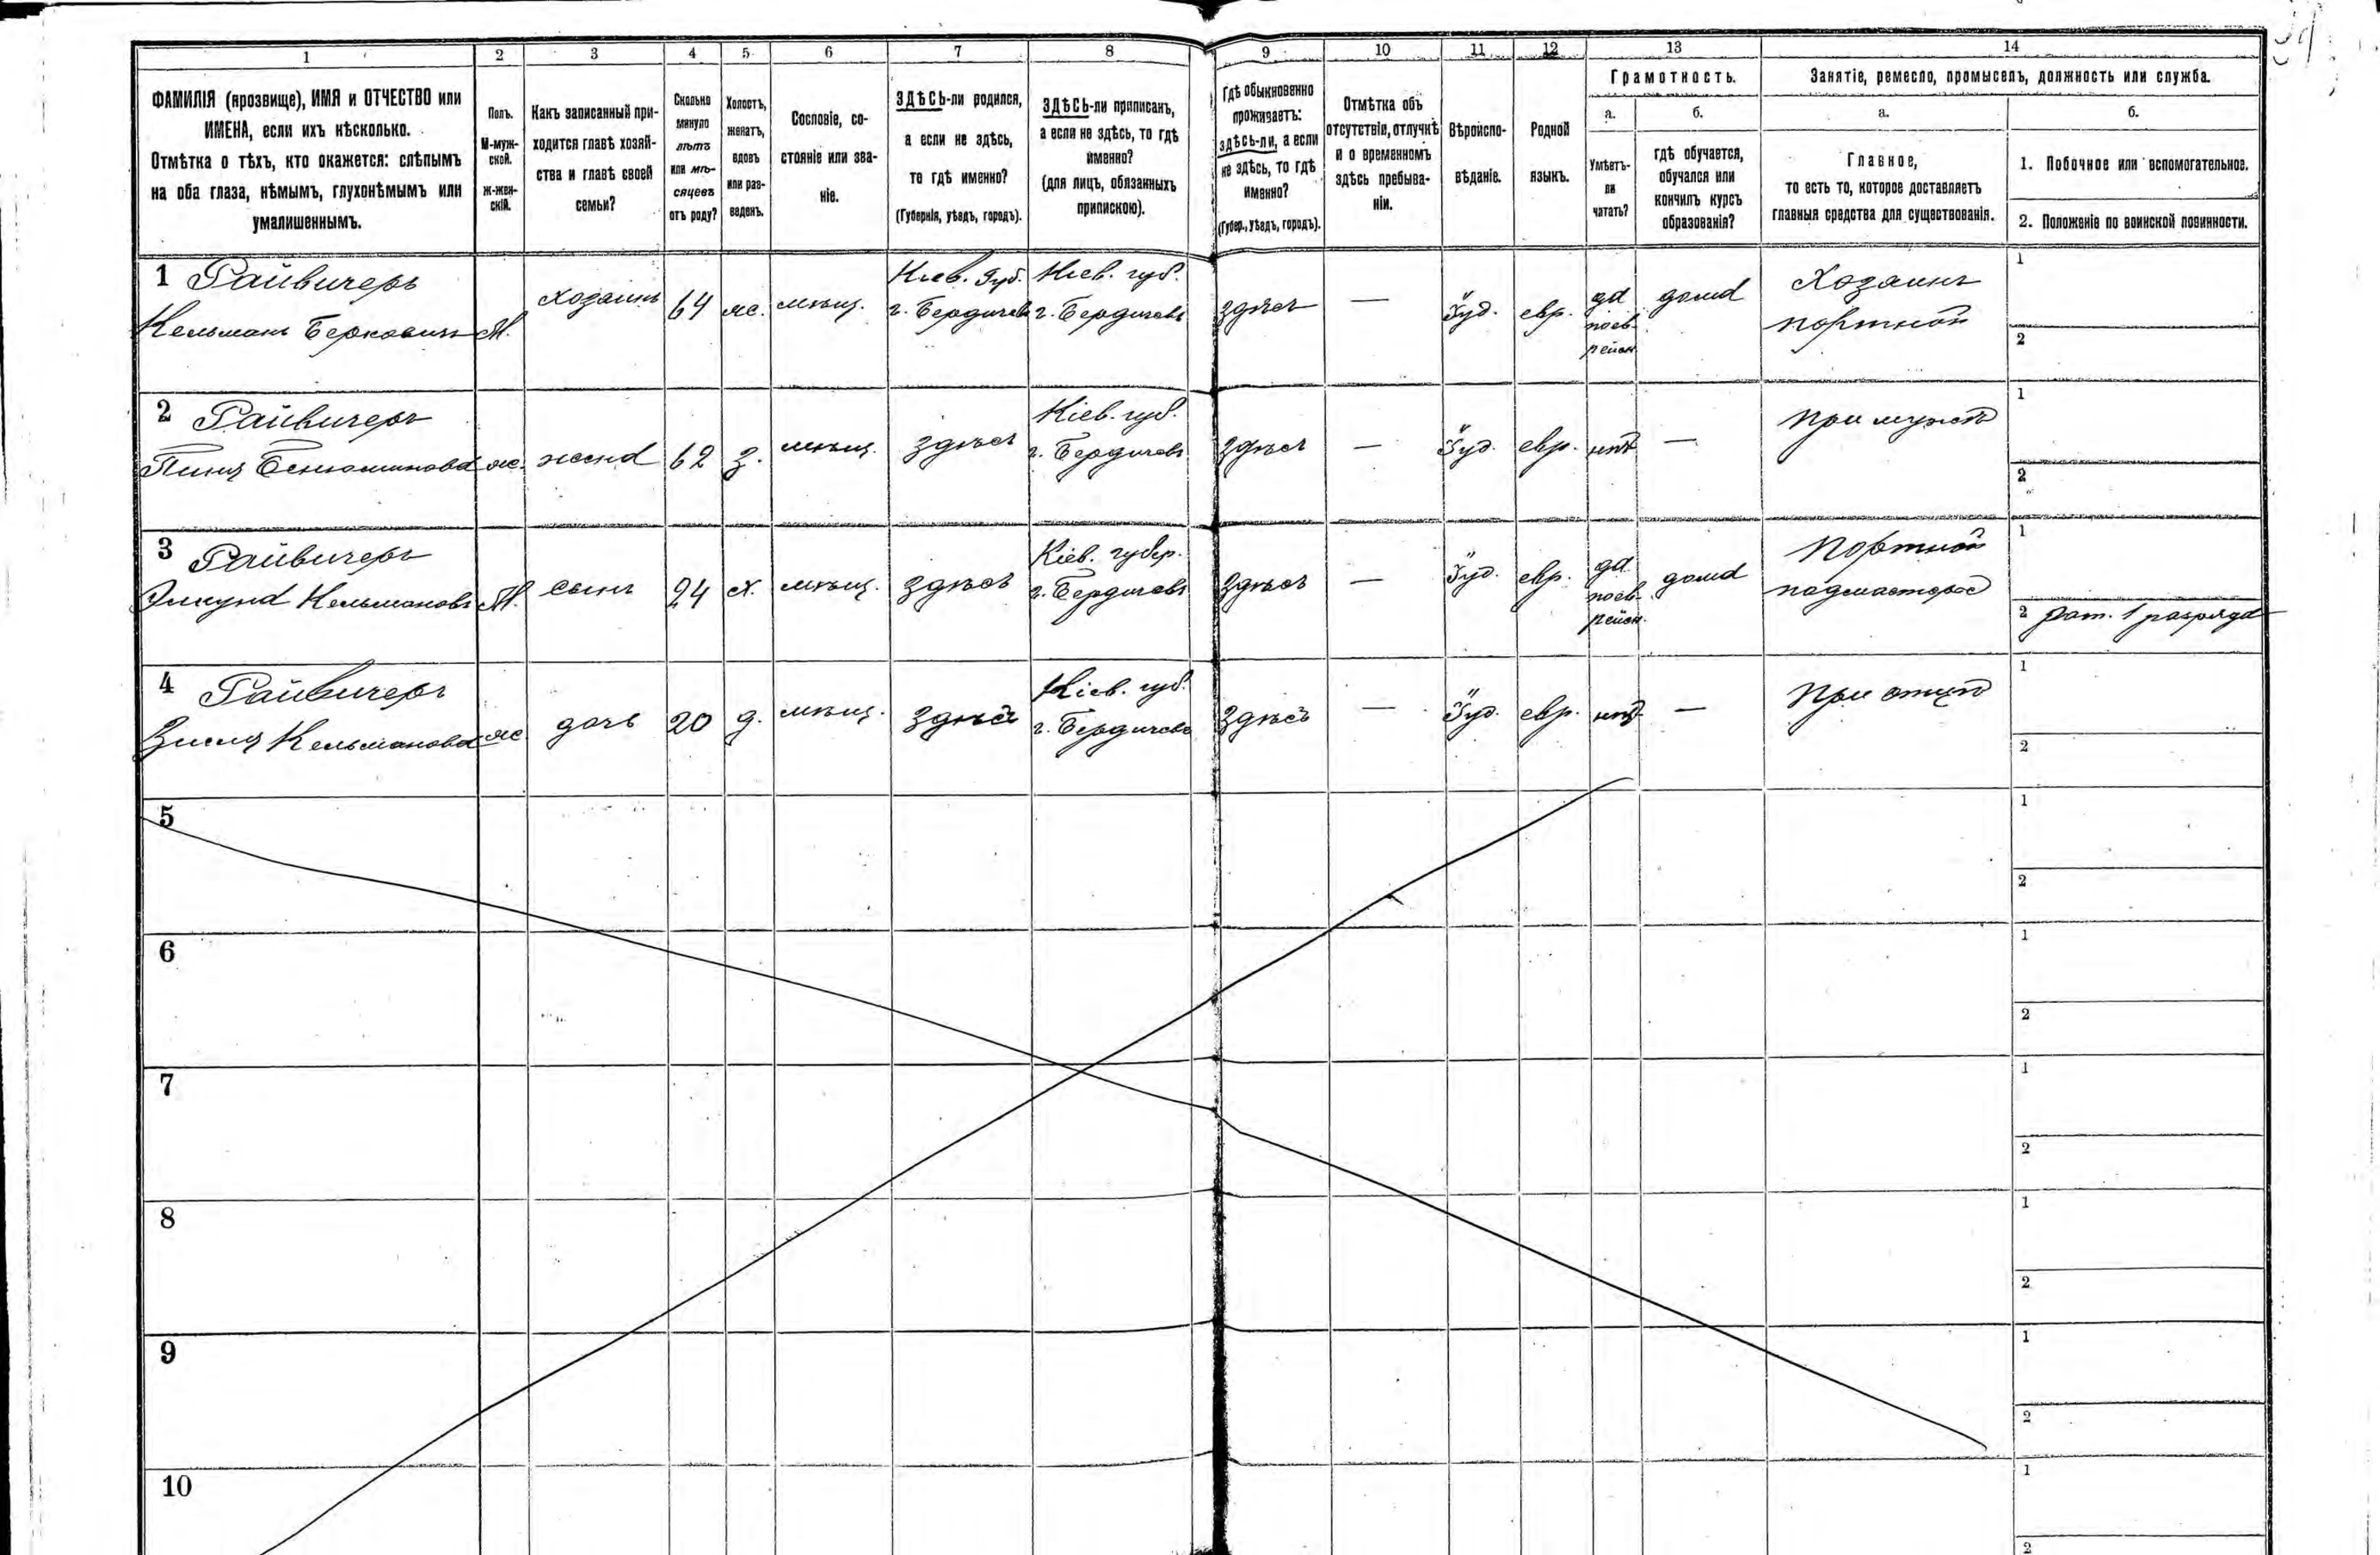 1 2 3 4 5 6 7 8 9 10 11 12 13 14
ФАМИЛІЯ (прозвище), ИМЯ и ОТЧЕСТВО или
ИМЕНА, если ихъ нѣсколько.
Отмѣтка о тѣхъ, кто окажется: слѣпымъ
на оба глаза, нѣмымъ, глухонѣмымъ или
умалишеннымъ.
Полъ.
М-муж-
ской.
ж-жен-
скій.
Какъ записанный при-
ходится главѣ хозяй-
ства и главѣ своей
семьи?
Сколько
минуло
лѣтъ
или мѣ-
сяцевъ
отъ роду?
Холостъ,
женатъ,
вдовъ
или раз-
веденъ.
Сословіе, со-
стояніе или зва-
ніе.
ЗДѢСЬ-ли родился,
а если не здѣсь,
то гдѣ именно?
(Губернія, уѣздъ, городъ).
ЗДѢСЬ-ли приписанъ,
а если не здѣсь, то гдѣ
именно?
(для лицъ, обязанныхъ
припискою).
Гдѣ обыкновенно
проживаетъ:
здѣсь-ли, а если
не здѣсь, то гдѣ
именно?
(Губер., уѣздъ, городъ).
Отмѣтка объ
отсутствіи, отлучкѣ
и о временномъ
здѣсь пребыва-
ніи.
Вѣроиспо-
вѣданіе.
Родной
языкъ.
Грамотность.
а.
Умѣетъ-
ли
читать?
б.
гдѣ обучается,
обучался или
кончилъ курсъ
образованія?
Занятіе, ремесло, промыселъ, должность или служба.
а.
Главное,
то есть то, которое доставляетъ
главныя средства для существованія.
б.
1. Побочное или вспомогательное.
2. Положеніе по воинской повинности.
1 Райвичеръ
Кельманъ Берковичъ
М.
хозаинъ
64
ж.
мѣщ.
Кіев. Губ.
г. Бердичевъ
Кіев. губ.
г. Бердичевъ
здѣсь
—
Іуд.
евр.
да
поев-
рейск.
дома
Хозаинъ
портной
1
2
2 Райвичеръ
Пиня Бенюминова
ж.
жена
62
з.
мѣщ.
здѣсь
Кіев. губ.
г. Бердичевъ
здѣсь
—
Іуд.
евр.
нѣтъ
—
при мужѣ
1
2
3 Райвичеръ
Кельмановъ
М.
сынъ
24
х.
мѣщ.
здѣсь
Кіев. губер.
г. Бердичевъ
здѣсь
—
Іуд.
евр.
да
поев-
рейск.
дома
Портной
подмастерье
1
2 рат. 1 разряда
4 Райвичеръ
Кельманова
ж.
дочь
20
д.
мѣщ.
здѣсь
Кіев. губ.
г. Бердичевъ
здѣсь
—
Іуд.
евр.
нѣтъ
—
При отцѣ
1
2
5
1
2
6
1
2
7
1
2
8
1
2
9
1
2
10
1
2